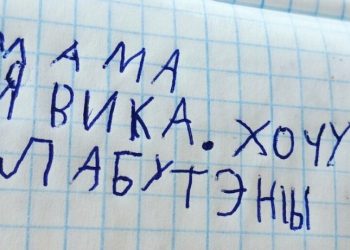 МАМА
Я ВИКА. ХОЧУ
ЛАБУТЭНЫ